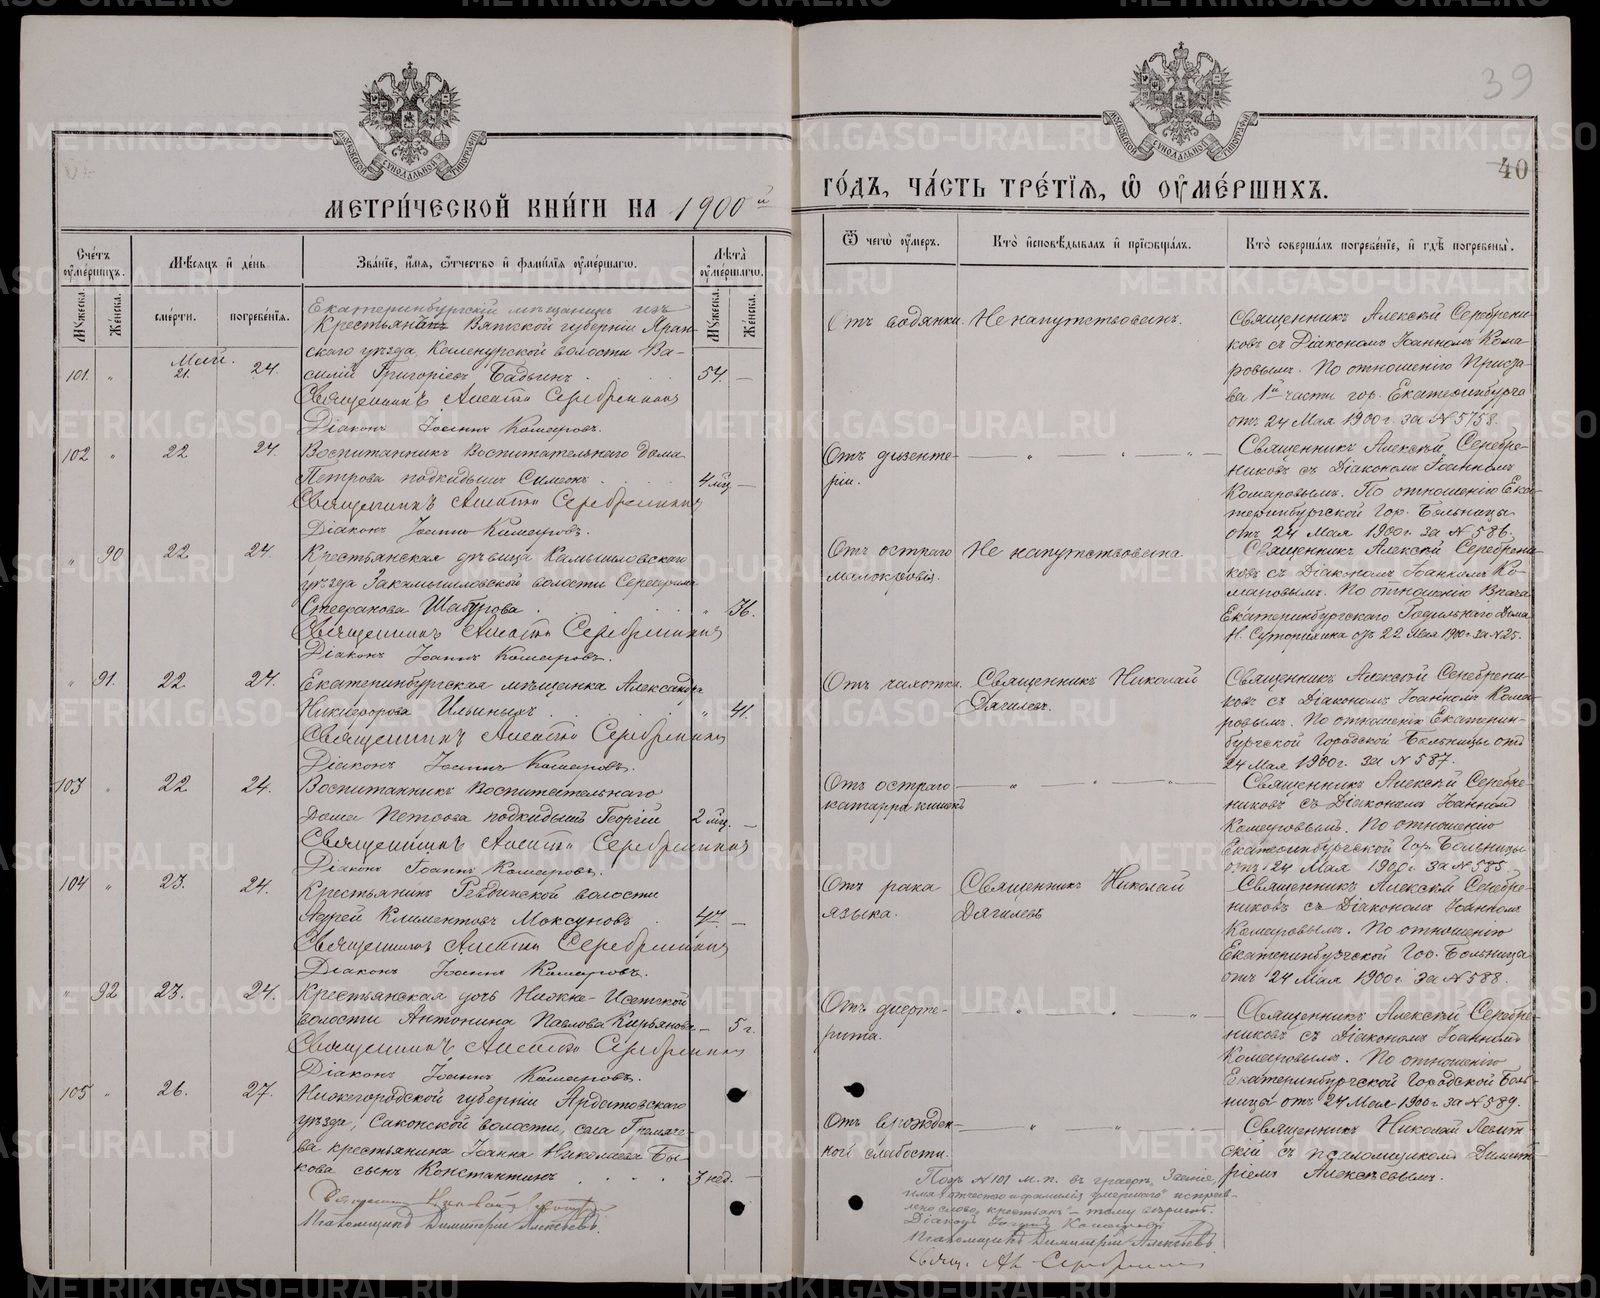 39
40
МЕТРИ́ЧЕСКОЙ КНИ́ГИ НА 1900й
ГО́ДЪ, ЧА́СТЬ ТРЕ́ТІѦ, Ѡ ОУМЕ́РШИХЪ.
Сче́тъ оуме́ршихъ.
Мѣ́сѧцъ и҆ де́нь
Зва́нїе, и҆́мѧ, ѻ҆́тчество и҆ фами́лїѧ оуме́ршагѡ.
Лѣ́та оуме́ршагѡ.
Мꙋ́жеска.
Же́нска.
сме́рти.
погребе́нїѧ.
Мꙋ́жеска.
Же́нска.
Ѿ чегѡ̀ оу҆́меръ.
Кто̀ и҆сповѣ́дывалъ и҆ прїѡбща́лъ.
Кто̀ соверша́лъ погребе́нїе, и҆ гдѣ̀ погребены̀.
Май.
101. " 21. 24.
Екатеринбургскій мѣщанинъ изъ
Крестьянъ Вятской губерніи Яран-
скаго уѣзда, волости Ва-
силій Григоріевъ Бадьинъ . 54. —
Священникъ Алексій Серебренниковъ
Діаконъ Іоаннъ Комаровъ.
Отъ водянки.
Не напутствованъ.
Священникъ Алексій Серебрени-
ковъ съ Діакономъ Іоанномъ Кома-
ровымъ. По отношенію Приста-
ва 1й части гор. Екатеринбурга
отъ 24 Мая 1900 г. за № 5758.
102 " 22 24.
Воспитанникъ Воспитательнаго дома
Петрова подкидышъ Симеонъ . 4 мц. —
Священникъ Алексій Серебренниковъ
Діаконъ Іоаннъ Комаровъ.
Отъ дизенте-
ріи.
— " — " — "
Священникъ Алексій Серебре-
никовъ съ Діакономъ Іоанномъ
Комаровымъ. По отношенію Ека-
теринбургской Гор. Больницы
отъ 24 Мая 1900 г. за № 586.
" 90 22 24.
Крестьянская дѣвица Камышловскаго
уѣзда Закамышловской волости
Стефанова Шабурова . " 36.
Священникъ Алексій Серебренниковъ
Діаконъ Іоаннъ Комаровъ.
Отъ остраго
малокровія.
Не напутствована.
Священникъ Алексій Серебрени-
ковъ съ Діакономъ Іоанномъ Ко-
маровымъ. По отношенію Врача
Екатеринбургскаго Родильнаго Дома
отъ 22 Мая 1900 г. за № 25.
" 91. 22 24.
Екатеринбургская мѣщанка Александра
Никифорова Ильиныхъ . " 41.
Священникъ Алексій Серебренниковъ
Діаконъ Іоаннъ Комаровъ.
Отъ чахотки.
Священникъ Николай
Дягилевъ.
Священникъ Алексій Серебрени-
ковъ съ Діакономъ Іоанномъ Кома-
ровымъ. По отношенію Екатерин-
бургской Городской Больницы отъ
24 Мая 1900 г. за № 587.
103 " 22 24.
Воспитанникъ Воспитательнаго
дома Петрова подкидышъ Георгій 2 мц. —
Священникъ Алексій Серебренниковъ
Діаконъ Іоаннъ Комаровъ.
Отъ остраго
катарра кишекъ
— " — " — "
Священникъ Алексій Серебре-
никовъ съ Діакономъ Іоанномъ
Комаровымъ. По отношенію
Екатеринбургской Гор. Больницы
отъ 24 Мая 1900 г. за № 585.
104 " 23. 24.
Крестьянинъ Ревдинской волости
Андрей Климентовъ Моксуновъ . 47. —
Священникъ Алексій Серебренниковъ
Діаконъ Іоаннъ Комаровъ.
Отъ рака
языка.
Священникъ Николай
Дягилевъ
Священникъ Алексій Серебре-
никовъ съ Діакономъ Іоанномъ
Комаровымъ. По отношенію
Екатеринбургской Гор. Больницы
отъ 24 Мая 1900 г. за № 588.
" 92 23. 24.
Крестьянская дочь Нижне-Исетской
волости Антонина Павлова Кирьянова — 5 г.
Священникъ Алексій Серебренниковъ
Діаконъ Іоаннъ Комаровъ.
Отъ дифте-
рита.
— " — " — "
Священникъ Алексій Серебре-
никовъ съ Діакономъ Іоанномъ
Комаровымъ. По отношенію
Екатеринбургской Городской Боль-
ницы отъ 24 Мая 1900 г. за № 589.
105 " 26. 27.
Нижегородской губерніи Ардатовскаго
уѣзда, Саконской волости, села Гремяче-
ва крестьянина Іоанна Николаева Бы-
кова сынъ Константинъ . . . . 3 нед. —
Священникъ Николай
Псаломщикъ Димитрій Алексѣевъ.
Отъ врожден-
ной слабости.
— " — " — "
Священникъ Николай Левит-
скій съ псаломщикомъ Димит-
ріемъ Алексѣевымъ.
Подъ № 101 м. п. въ графѣ „Званіе,
имя отчество и фамилія умершаго" исправ-
лено слово „крестьян"
Діаконъ Іоаннъ Комаровъ
Псаломщикъ Димитрій Алексѣевъ
Свящ. Ал. Серебренниковъ
METRIKI.GASO-URAL.RU